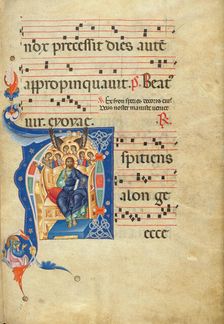 nox precessit dies aute
appropinquauit. P. Beat
uir. euouae.
R.
spitiens
a lon ge
ecce